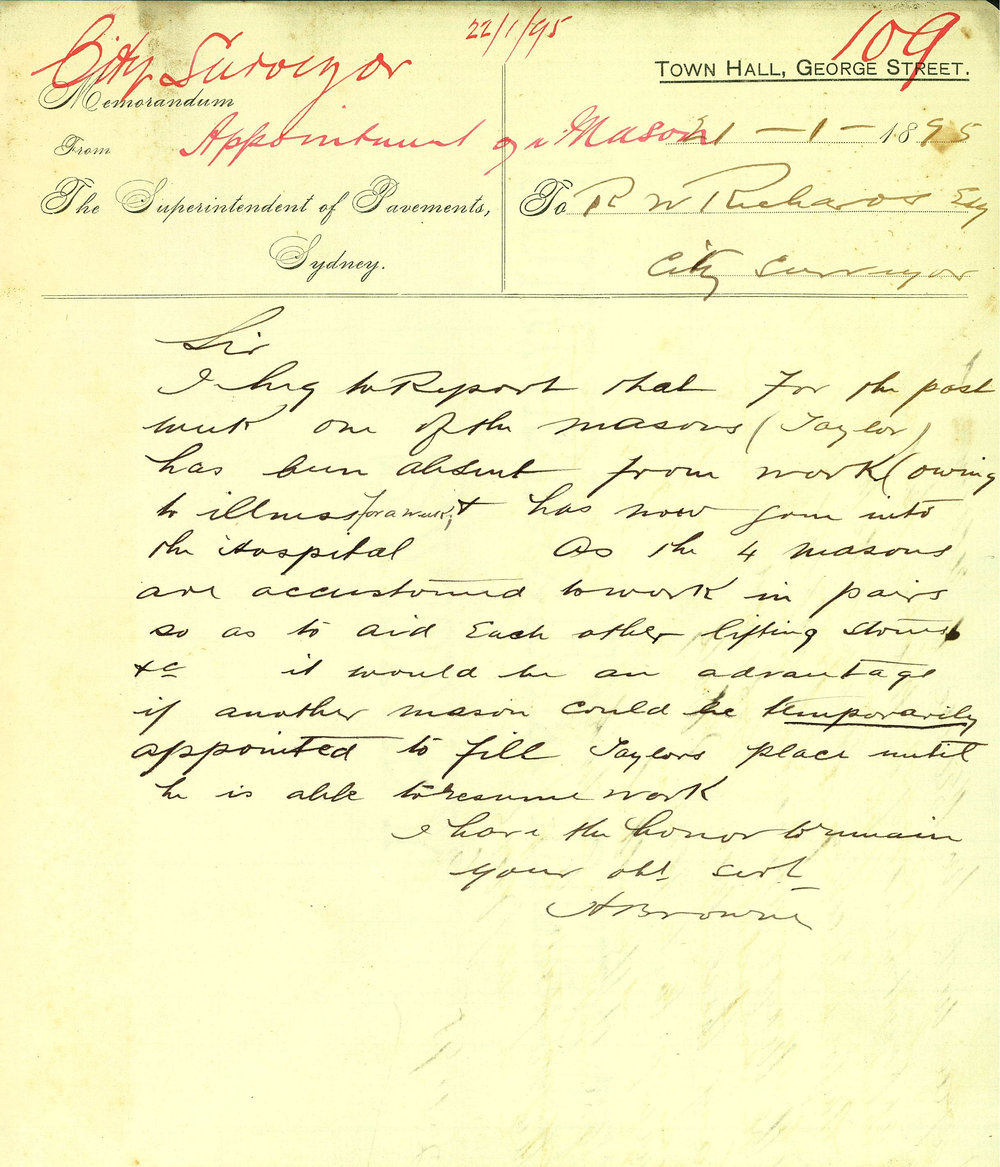 22/1/95
109
City Surveyor
TOWN HALL, GEORGE STREET.
Memorandum
Appointment of a Mason
From
21-1-1895
The Superintendent of Pavements,
Sydney.
To R W Richards Esq
City Surveyor
Sir
I beg to Report that For the past
week one of the masons (Taylor)
has been absent from work (owing
to illness for a week, & has now gone into
the Hospital As the 4 masons
are accustomed to work in pairs
so as to aid Each other lifting stones
&c it would be an advantage
if another mason could be temporarily
appointed to fill Taylors place until
he is able to resume work
I have the honor to remain
your obt. servt
A Browne